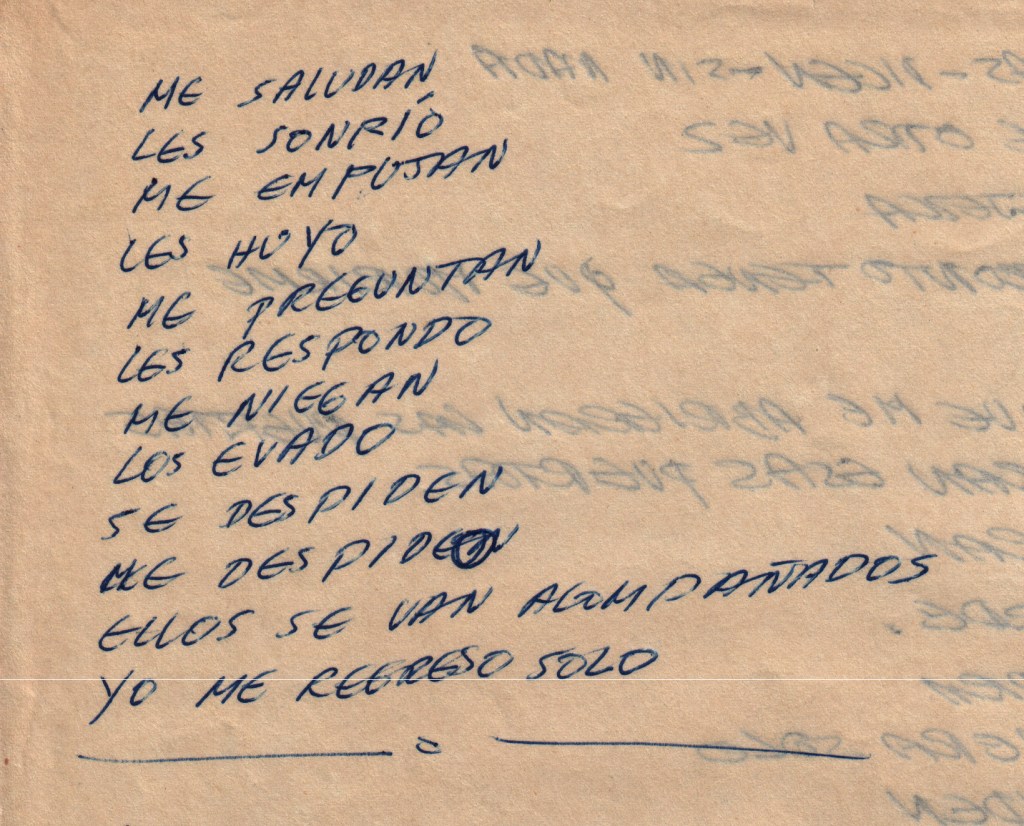 ME SALUDAN
LES SONRIÓ
ME EMPUJAN
LES HUYO
ME PREGUNTAN
LES RESPONDO
ME NIEGAN
LOS EVADO
SE DESPIDEN
ME DESPIDO
ELLOS SE VAN ACOMPAÑADOS
YO ME REGRESO SOLO